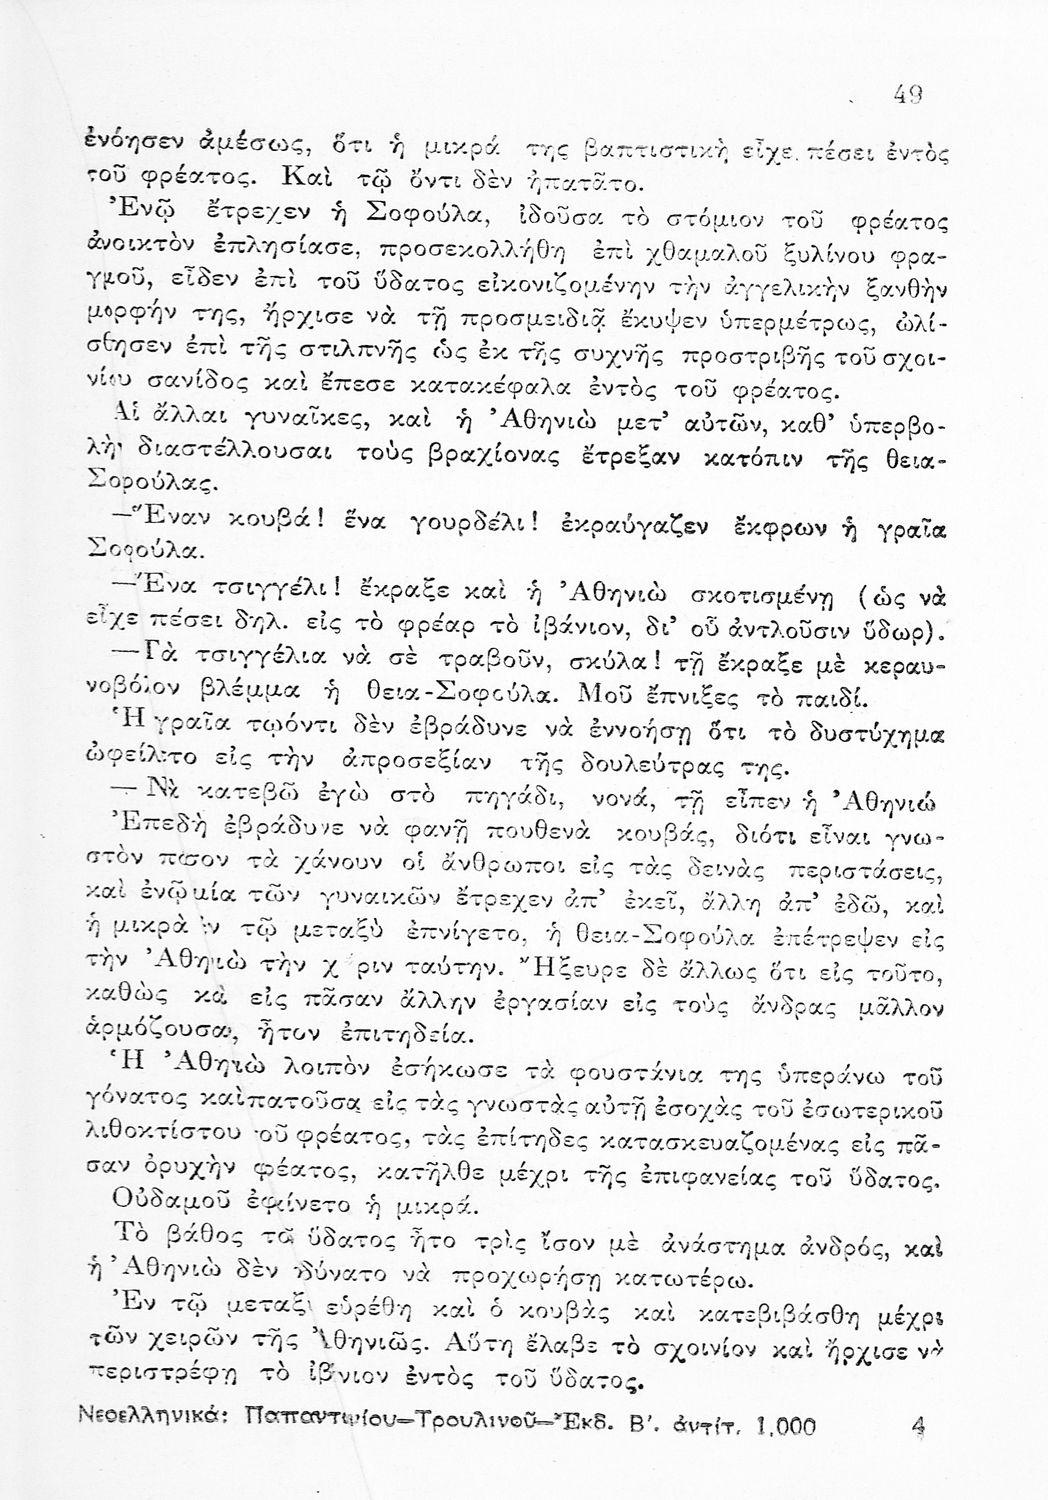 49
ἐνόησεν ἀμέσως, ὅτι ἡ μικρά της βαπτιστικὴ εἶχε. πέσει ἐντὸς
τοῦ φρέατος. Καὶ τῷ ὄντι δὲν ἠπατᾶτο.
Ἐνῷ ἔτρεχεν ἡ Σοφούλα, ἰδοῦσα τὸ στόμιον τοῦ φρέατος
ἀνοικτὸν ἐπλησίασε, προσεκολλήθη ἐπὶ χθαμαλοῦ ξυλίνου φρα-
γμοῦ, εἶδεν ἐπὶ τοῦ ὕδατος εἰκονιζομένην τὴν ἀγγελικὴν ξανθὴν
μορφήν της, ἤρχισε νὰ τῇ προσμειδιᾷ ἔκυψεν ὑπερμέτρως, ὠλί-
σθησεν ἐπὶ τῆς στιλπνῆς ὡς ἐκ τῆς συχνῆς προστριβῆς τοῦ σχοι-
νίου σανίδος καὶ ἔπεσε κατακέφαλα ἐντὸς τοῦ φρέατος.
Αἱ ἄλλαι γυναῖκες, καὶ ἡ Ἀθηνιὼ μετ’ αὐτῶν, καθ’ ὑπερβο-
λὴν διαστέλλουσαι τοὺς βραχίονας ἔτρεξαν κατόπιν τῆς θεια-
Σοφούλας.
—Ἕναν κουβά! ἕνα γουρδέλι! ἐκραύγαζεν ἔκφρων ἡ γραῖα
Σοφούλα.
—Ἕνα τσιγγέλι! ἔκραξε καὶ ἡ Ἀθηνιὼ σκοτισμένη (ὡς νὰ
εἶχε πέσει δηλ. εἰς τὸ φρέαρ τὸ ἰβάνιον, δι’ οὗ ἀντλοῦσιν ὕδωρ).
—Γὰ τσιγγέλια νὰ σὲ τραβοῦν, σκύλα! τῇ ἔκραξε μὲ κεραυ-
νοβόλον βλέμμα ἡ θεια-Σοφούλα. Μοῦ ἔπνιξες τὸ παιδί.
Ἡ γραῖα τῳόντι δὲν ἐβράδυνε νὰ ἐννοήσῃ ὅτι τὸ δυστύχημα
ὠφείλετο εἰς τὴν ἀπροσεξίαν τῆς δουλεύτρας της.
— Νὰ κατεβῶ ἐγὼ στὸ πηγάδι, νονά, τῇ εἶπεν ἡ Ἀθηνιώ
Ἐπεδὴ ἐβράδυνε νὰ φανῇ πουθενὰ κουβάς, διότι εἶναι γνω-
στὸν πόσον τὰ χάνουν οἱ ἄνθρωποι εἰς τὰς δεινὰς περιστάσεις,
καὶ ἐνῷ μία τῶν γυναικῶν ἔτρεχεν ἀπ’ ἐκεῖ, ἄλλη ἀπ’ ἐδῶ, καὶ
ἡ μικρὰ ἐν τῷ μεταξὺ ἐπνίγετο, ἡ θεια-Σοφούλα ἐπέτρεψεν εἰς
τὴν Ἀθηνιὼ τὴν χάριν ταύτην. Ἤξευρε δὲ ἄλλως ὅτι εἰς τοῦτο,
καθὼς καὶ εἰς πᾶσαν ἄλλην ἐργασίαν εἰς τοὺς ἄνδρας μᾶλλον
ἁρμόζουσαν, ἦτον ἐπιτηδεία.
Ἡ Ἀθηνιὼ λοιπὸν ἐσήκωσε τὰ φουστάνια της ὑπεράνω τοῦ
γόνατος καὶπατοῦσα εἰς τὰς γνωστὰς αὐτῇ ἐσοχὰς τοῦ ἐσωτερικοῦ
λιθοκτίστου τοῦ φρέατος, τὰς ἐπίτηδες κατασκευαζομένας εἰς πᾶ-
σαν ὀρυχὴν φρέατος, κατῆλθε μέχρι τῆς ἐπιφανείας τοῦ ὕδατος.
Οὐδαμοῦ ἐφαίνετο ἡ μικρά.
Τὸ βάθος τοῦ ὕδατος ἦτο τρὶς ἴσον μὲ ἀνάστημα ἀνδρός, καὶ
ἡ Ἀθηνιὼ δὲν ἠδύνατο νὰ προχωρήσῃ κατωτέρω.
Ἐν τῷ μεταξὺ εὑρέθη καὶ ὁ κουβὰς καὶ κατεβιβάσθη μέχρι
τῶν χειρῶν τῆς Ἀθηνιῶς. Αὕτη ἔλαβε τὸ σχοινίον καὶ ἤρχισε νὰ
περιστρέφῃ τὸ ἰβάνιον ἐντὸς τοῦ ὕδατος.
Νεοελληνικά: Παπαντωνίου—Τρουλινοῦ—Ἔκδ. Β′. ἀντίτ. 1.000 4